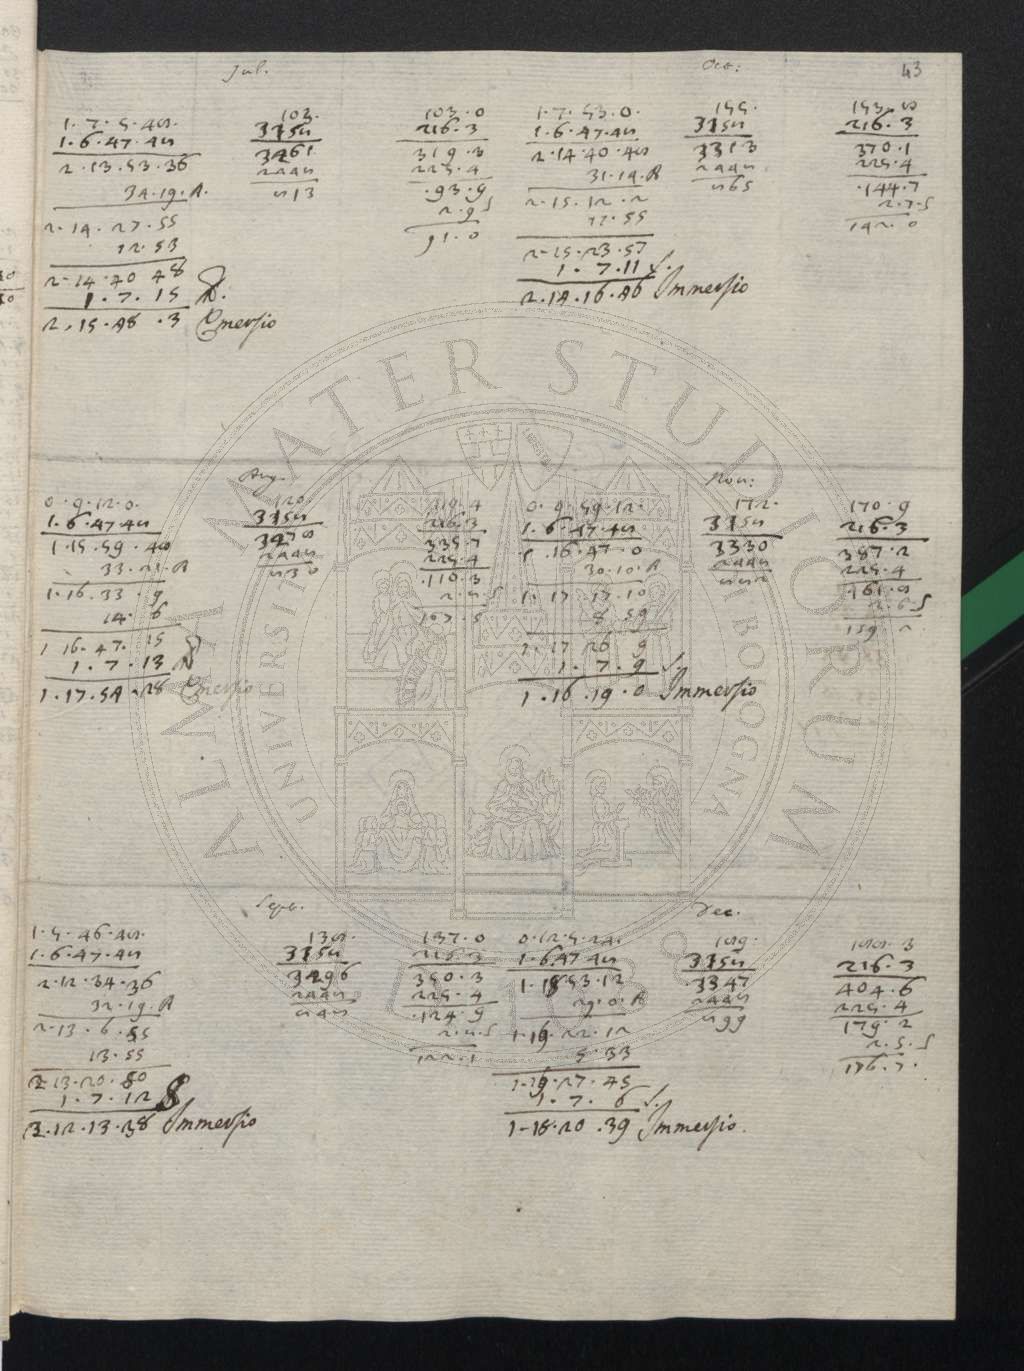 43
Jul.
1.7.5.48.
1.6.47.48
2.13.53.36
34.19.A.
2.14.27.55
12.53
2.14.40 48
1.7.15 A.
2.15.48.3 Emersio
103.
3158
3261
2448
813
103.0
216.3
319.3
225.4
.93.9
2.9 S
91.0
Oct:
1.7.53.0.
1.6.47.48
2.14.40.48
31.14.A
2.15.12.2
11.55
2.15.23.57
1.7.11 S.
2.14.16.46 Immersio
155.
3158
3313
2448
865
153.8
216.3
370.1
225.4
.144.7
2.7.S
142.0
Aug.
0.9.12.0.
1.6.47.48
1.15.59.48
33.21.A
1.16.33.9
14.6
1 16.47.15
1.7.13 A
1.17.54.28 Emersio
120.
3158
3278
2448
830
119.4
216.3
335.7
225.4
.110.3
2.8.S
107.5
Nov:
0.9.59.12.
1.6.47.48
1.16.47.0
30.10.A
1.17.17.10
8 59
1.17 26 9
1.7.9 S.
1.16.19.0 Immersio
172.
3158
3330
2448
882
170.9
216.3
387.2
225.4
161.8
2.6.S
159.2
Sept.
1.5.46.48.
1.6.47.48
2.12.34.36
32.19.A
2.13.6.55
13.55
2.13.20.50
1.7.12 S
2.12.13.38 Immersio
138.
3158
3296
2448
848
134.0
216.3
350.3
225.4
.124.9
2.8.S
122.1
Dec.
0.12.5.24.
1.6.47.48
1.18.53.12
29.0.A
1.19.22.12
5.33
1.19.27.45
1.7.6 S.
1.18.20.39 Immersio.
189.
3158
3347
2448
899
188.3
216.3
404.6
225.4
179.2
2.5.S
176.7.
ALMA MATER STUDIORUM
UNIVERSITÀ DI BOLOGNA